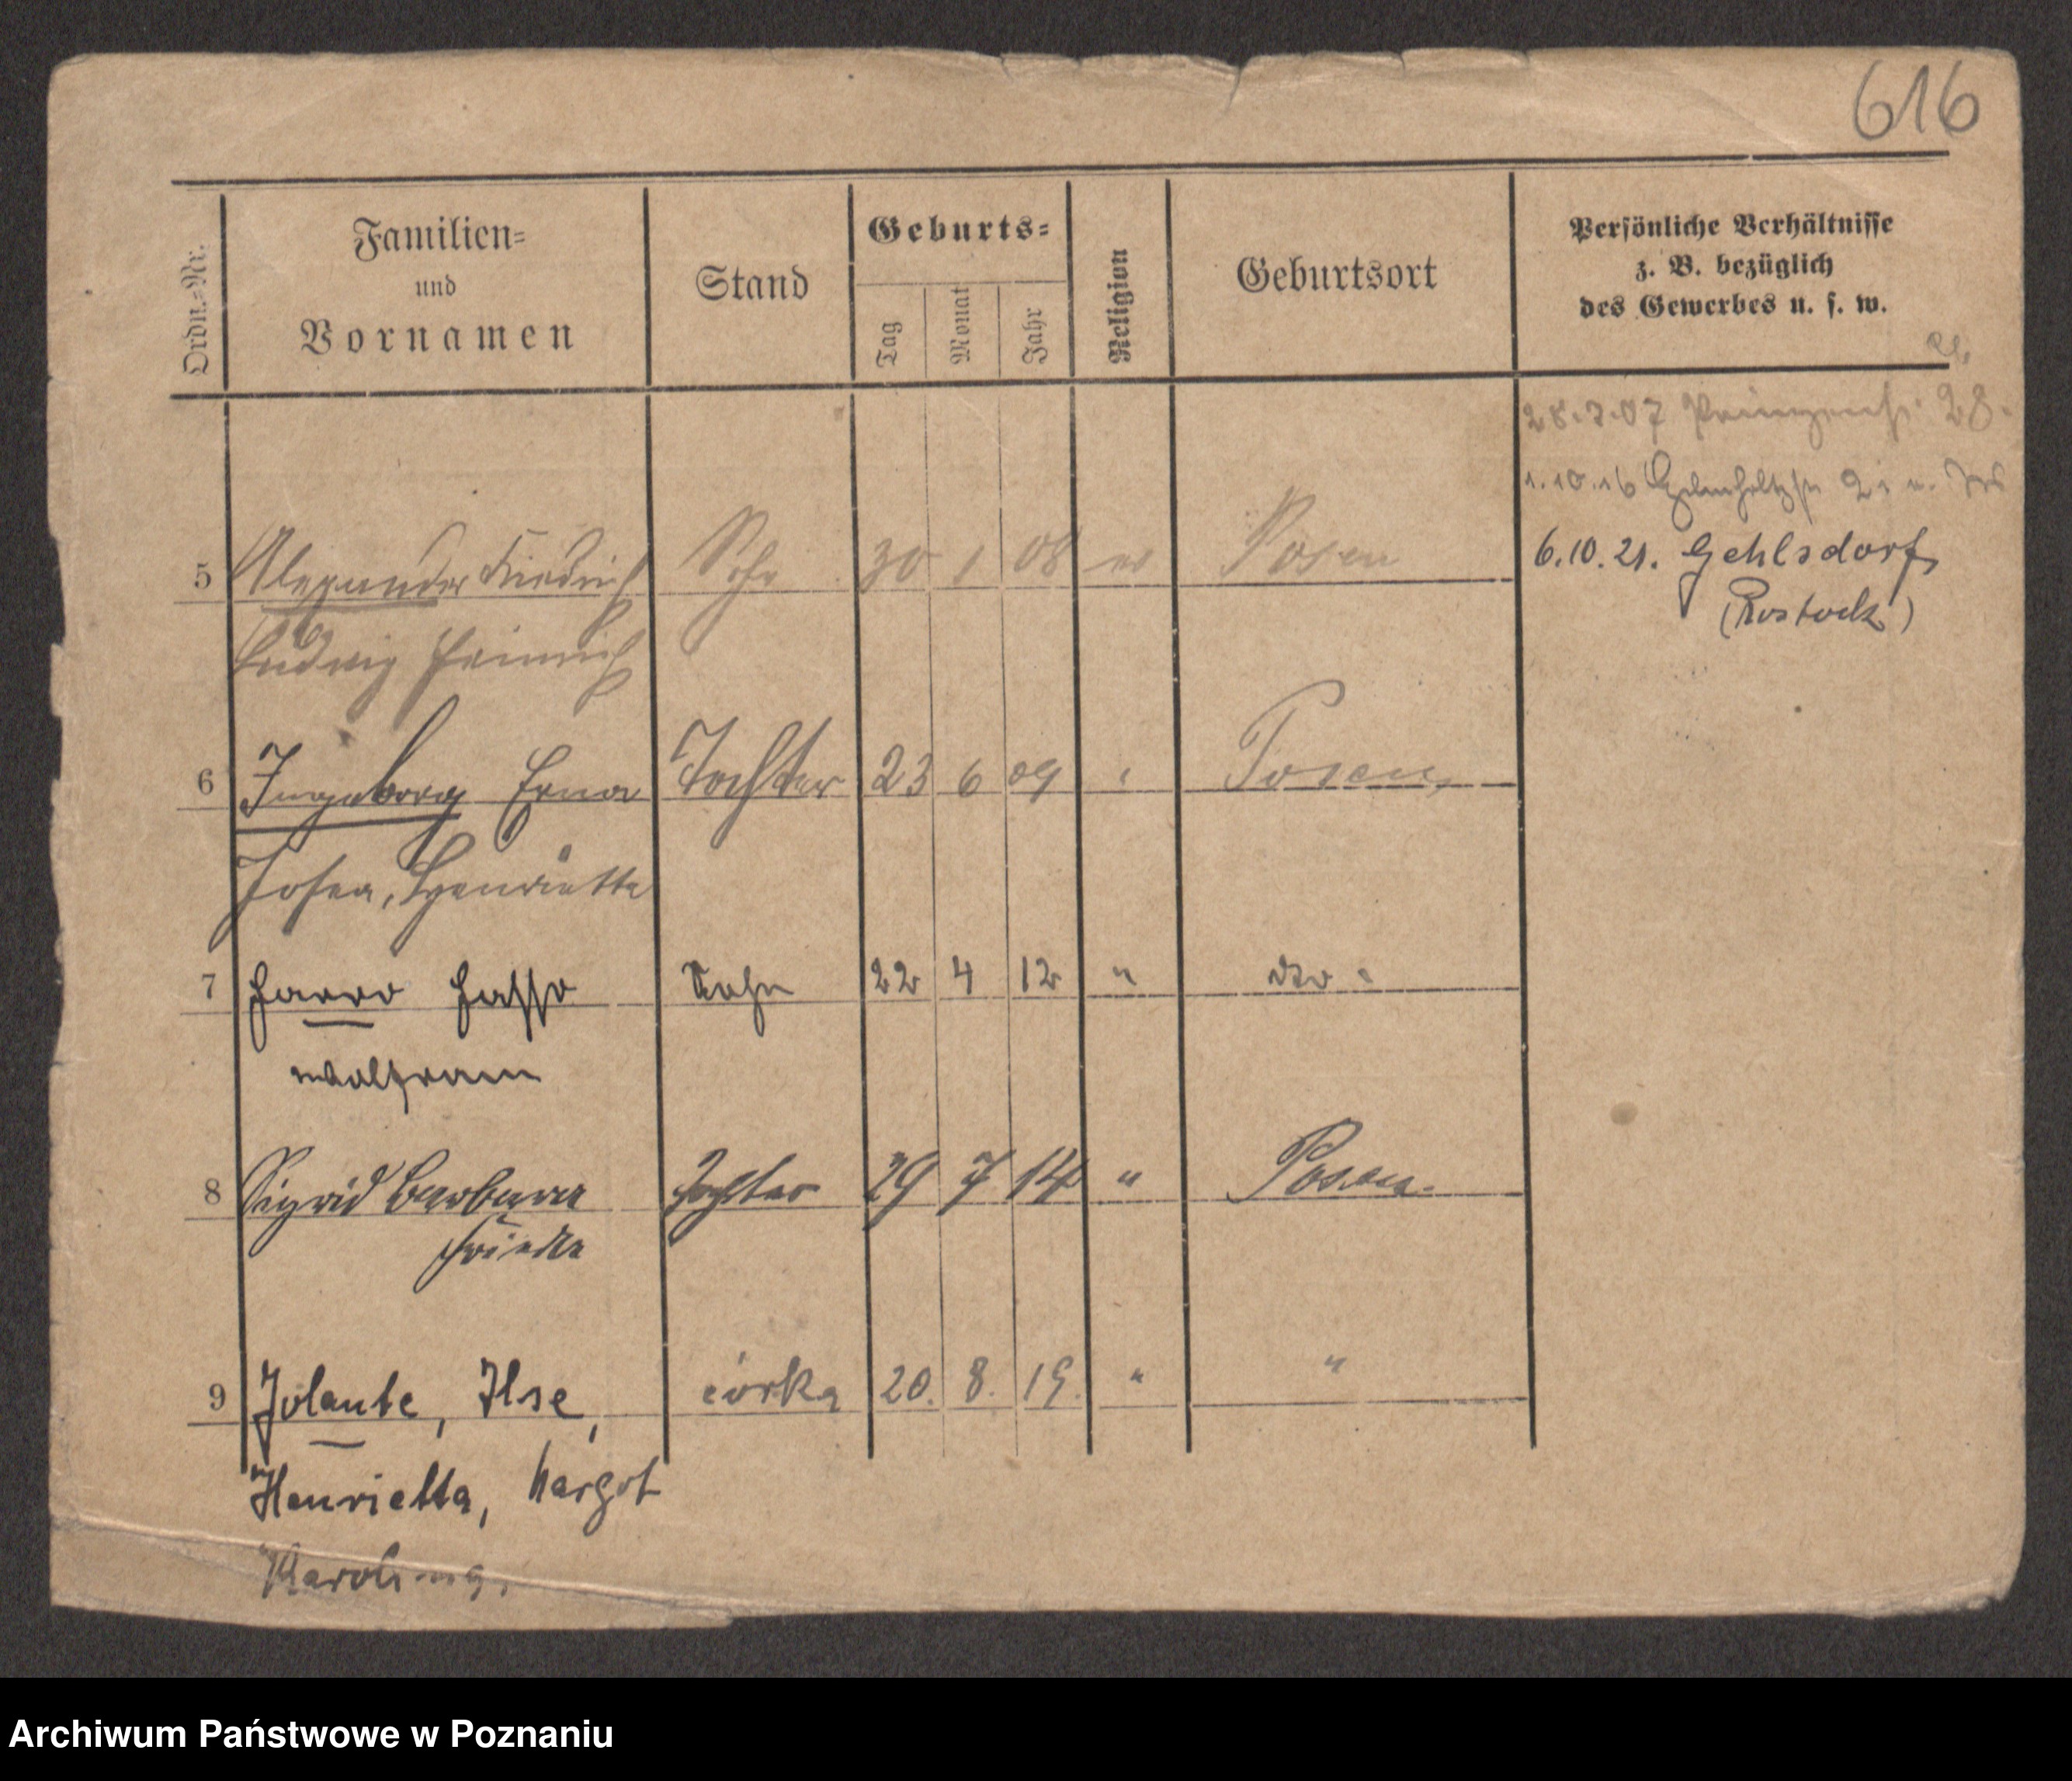 616
Ordn.=Nr.
Familien=
und
Vornamen
Stand
Geburts=
Tag
Monat
Jahr
Religion
Geburtsort
Persönliche Verhältnisse
z. B. bezüglich
des Gewerbes u. s. w.
28.3.07 Prinzenstr. 28.
1.10.16 Helmholtzstr
6.10.21. Gehlsdorf,
(Rostock)
5 Alexander Friedrich Sohn 30 1 08 ev Posen
Ludwig Heinrich
6 Ingeborg Erna Tochter 23 6 09 " Posen,
Henriette
7 Harro Hasso Sohn 22 4 12 " dto.
Wolfram
8 Sigrid Barbara Tochter 29 7 14 " Posen.
Frieda
9 Jolante, Ilse, córka 20. 8. 19. " "
Henrietta, Margot
Karolina,
Archiwum Państwowe w Poznaniu